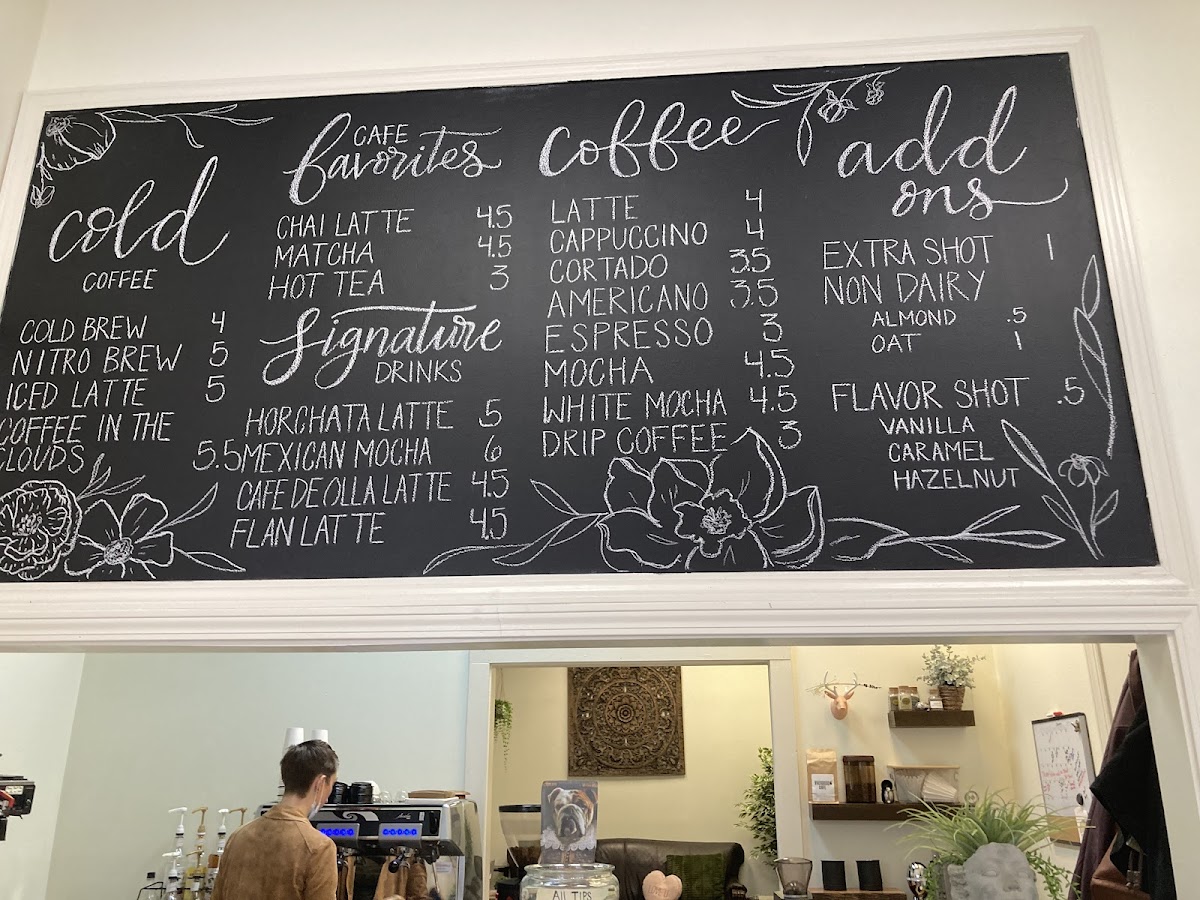 cold
COFFEE
COLD BREW 4
NITRO BREW 5
ICED LATTE 5
COFFEE IN THE
CLOUDS 5.5
CAFE
favorites
CHAI LATTE 4.5
MATCHA 4.5
HOT TEA 3
Signature
DRINKS
HORCHATA LATTE 5
MEXICAN MOCHA 6
CAFE DE OLLA LATTE 4.5
FLAN LATTE 4.5
coffee
LATTE 4
CAPPUCCINO 4
CORTADO 3.5
AMERICANO 3.5
ESPRESSO 3
MOCHA 4.5
WHITE MOCHA 4.5
DRIP COFFEE 3
add
ons
EXTRA SHOT 1
NON DAIRY
ALMOND .5
OAT 1
FLAVOR SHOT .5
VANILLA
CARAMEL
HAZELNUT
All TIPS